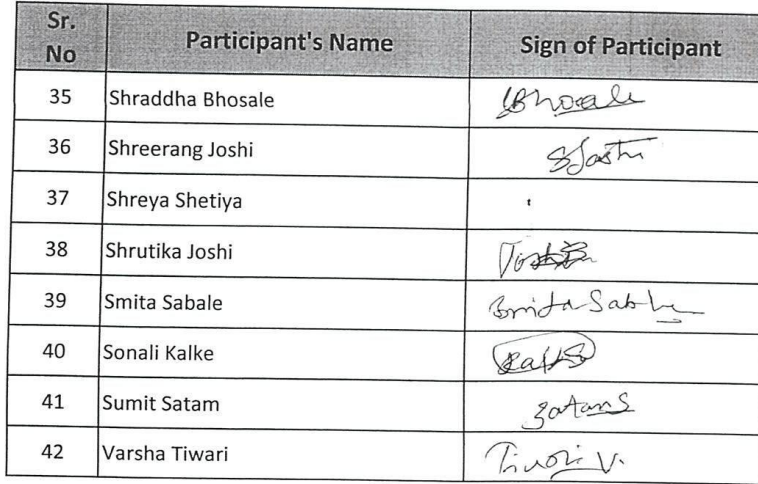 Sr. No Participant's Name Sign of Participant
35 Shraddha Bhosale Bhosale
36 Shreerang Joshi SJoshi
37 Shreya Shetiya
38 Shrutika Joshi
39 Smita Sabale Smita Sabale
40 Sonali Kalke
41 Sumit Satam Satam S
42 Varsha Tiwari Tiwari V.